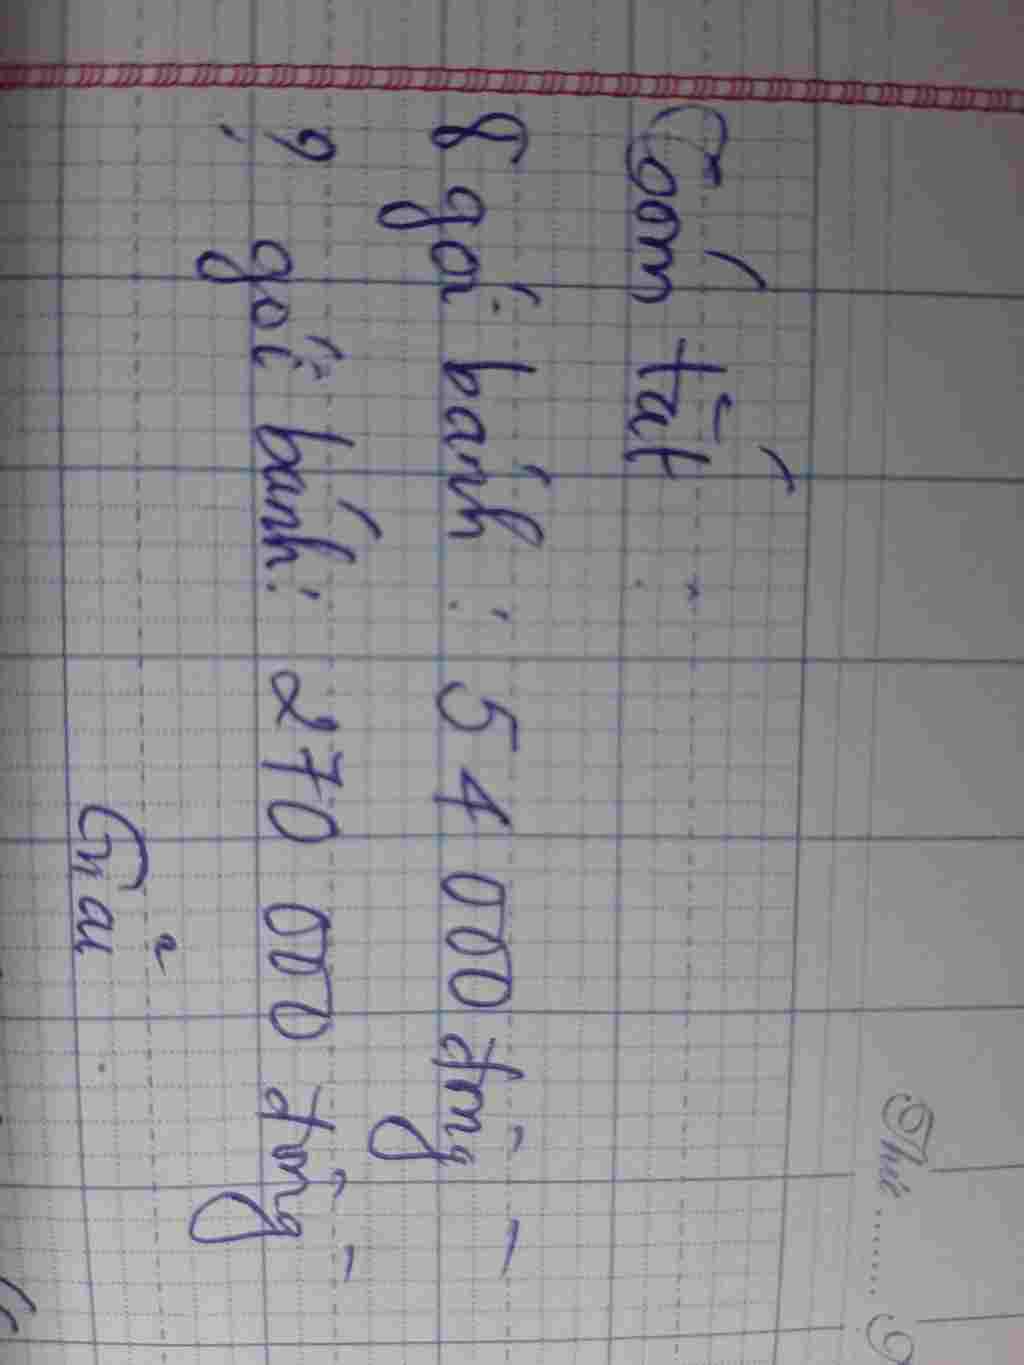 Thứ
Tóm tắt :
8 gói bánh : 54 000 đồng
? gói bánh : 270 000 đồng
Giải